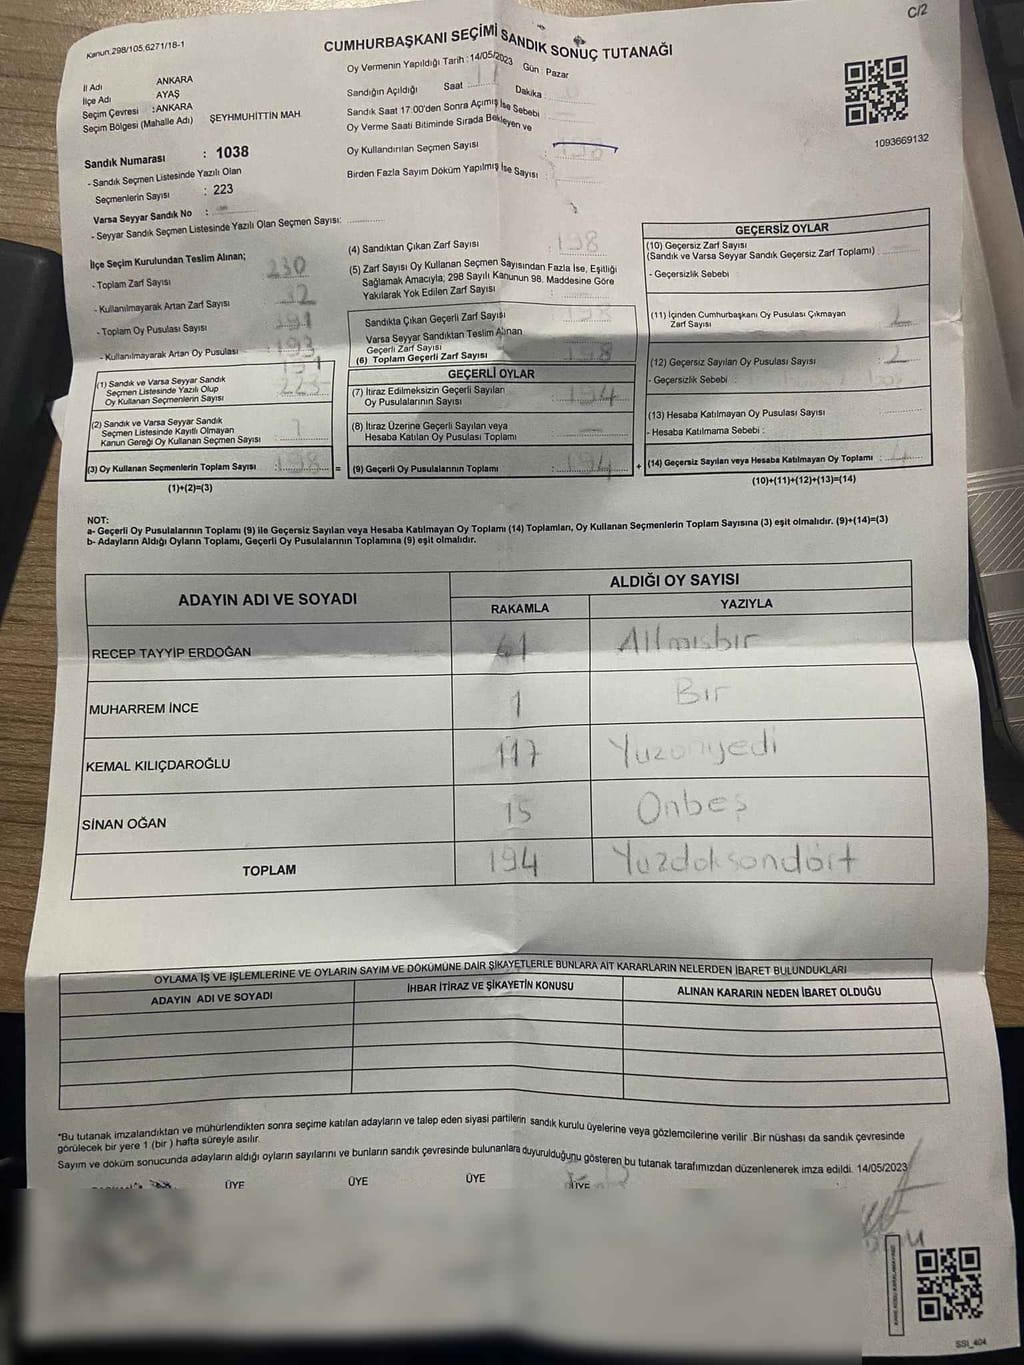 C/2
Kanun.298/105.6271/18-1
CUMHURBAŞKANI SEÇİMİ SANDIK SONUÇ TUTANAĞI
İl Adı ANKARA
İlçe Adı AYAŞ
Seçim Çevresi :ANKARA
Seçim Bölgesi (Mahalle Adı) ŞEYHMUHİTTİN MAH
Sandık Numarası : 1038
- Sandık Seçmen Listesinde Yazılı Olan
Seçmenlerin Sayısı : 223
Varsa Seyyar Sandık No :
- Seyyar Sandık Seçmen Listesinde Yazılı Olan Seçmen Sayısı:
Oy Vermenin Yapıldığı Tarih : 14/05/2023 Gün : Pazar
Sandığın Açıldığı Saat Dakika
Sandık Saat 17:00'den Sonra Açımış İse Sebebi
Oy Verme Saati Bitiminde Sırada Bekleyen ve
Oy Kullandırılan Seçmen Sayısı 198
Birden Fazla Sayım Döküm Yapılmış İse Sayısı :
1093669132
İlçe Seçim Kurulundan Teslim Alınan;
- Toplam Zarf Sayısı : 230
- Kullanılmayarak Artan Zarf Sayısı : 32
- Toplam Oy Pusulası Sayısı :
- Kullanılmayarak Artan Oy Pusulası : 193
(1) Sandık ve Varsa Seyyar Sandık
Seçmen Listesinde Yazılı Olup
Oy Kullanan Seçmenlerin Sayısı :
(2) Sandık ve Varsa Seyyar Sandık
Seçmen Listesinde Kayıtlı Olmayan
Kanun Gereği Oy Kullanan Seçmen Sayısı : 7
(3) Oy Kullanan Seçmenlerin Toplam Sayısı : 198 =
(1)+(2)=(3)
(4) Sandıktan Çıkan Zarf Sayısı : 198
(5) Zarf Sayısı Oy Kullanan Seçmen Sayısından Fazla İse, Eşitliği
Sağlamak Amacıyla; 298 Sayılı Kanunun 98. Maddesine Göre
Yakılarak Yok Edilen Zarf Sayısı
Sandıkta Çıkan Geçerli Zarf Sayısı 198
Varsa Seyyar Sandıktan Teslim Alınan
Geçerli Zarf Sayısı
(6) Toplam Geçerli Zarf Sayısı : 198
GEÇERLİ OYLAR
(7) İtiraz Edilmeksizin Geçerli Sayılan
Oy Pusulalarının Sayısı : 194
(8) İtiraz Üzerine Geçerli Sayılan veya
Hesaba Katılan Oy Pusulası Toplamı :
(9) Geçerli Oy Pusulalarının Toplamı : 194 +
GEÇERSİZ OYLAR
(10) Geçersiz Zarf Sayısı
(Sandık ve Varsa Seyyar Sandık Geçersiz Zarf Toplamı) :
- Geçersizlik Sebebi :
(11) İçinden Cumhurbaşkanı Oy Pusulası Çıkmayan
Zarf Sayısı : 2
(12) Geçersiz Sayılan Oy Pusulası Sayısı : 2
- Geçersizlik Sebebi :
(13) Hesaba Katılmayan Oy Pusulası Sayısı :
- Hesaba Katılmama Sebebi :
(14) Geçersiz Sayılan veya Hesaba Katılmayan Oy Toplamı : 4
(10)+(11)+(12)+(13)=(14)
NOT:
a- Geçerli Oy Pusulalarının Toplamı (9) ile Geçersiz Sayılan veya Hesaba Katılmayan Oy Toplamı (14) Toplamları, Oy Kullanan Seçmenlerin Toplam Sayısına (3) eşit olmalıdır. (9)+(14)=(3)
b- Adayların Aldığı Oyların Toplamı, Geçerli Oy Pusulalarının Toplamına (9) eşit olmalıdır.
ADAYIN ADI VE SOYADI
ALDIĞI OY SAYISI
RAKAMLA YAZIYLA
RECEP TAYYİP ERDOĞAN 61 Altmışbir
MUHARREM İNCE 1 Bir
KEMAL KILIÇDAROĞLU 117 Yüzonyedi
SİNAN OĞAN 15 Onbeş
TOPLAM 194 Yüzdoksandört
OYLAMA İŞ VE İŞLEMLERİNE VE OYLARIN SAYIM VE DÖKÜMÜNE DAİR ŞİKAYETLERLE BUNLARA AİT KARARLARIN NELERDEN İBARET BULUNDUKLARI
ADAYIN ADI VE SOYADI İHBAR İTİRAZ VE ŞİKAYETİN KONUSU ALINAN KARARIN NEDEN İBARET OLDUĞU
*Bu tutanak imzalandıktan ve mühürlendikten sonra seçime katılan adayların ve talep eden siyasi partilerin sandık kurulu üyelerine veya gözlemcilerine verilir .Bir nüshası da sandık çevresinde
görülecek bir yere 1 (bir ) hafta süreyle asılır.
Sayım ve döküm sonucunda adayların aldığı oyların sayılarını ve bunların sandık çevresinde bulunanlara duyurulduğunu gösteren bu tutanak tarafımızdan düzenlenerek imza edildi. 14/05/2023
ÜYE ÜYE ÜYE ÜYE
SSI_404